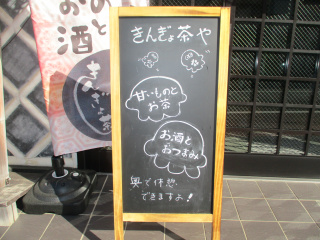 おのと
お酒
きんぎょ茶や
甘いものと
お茶
お酒と
おつまみ
奥で休憩
できますよ!